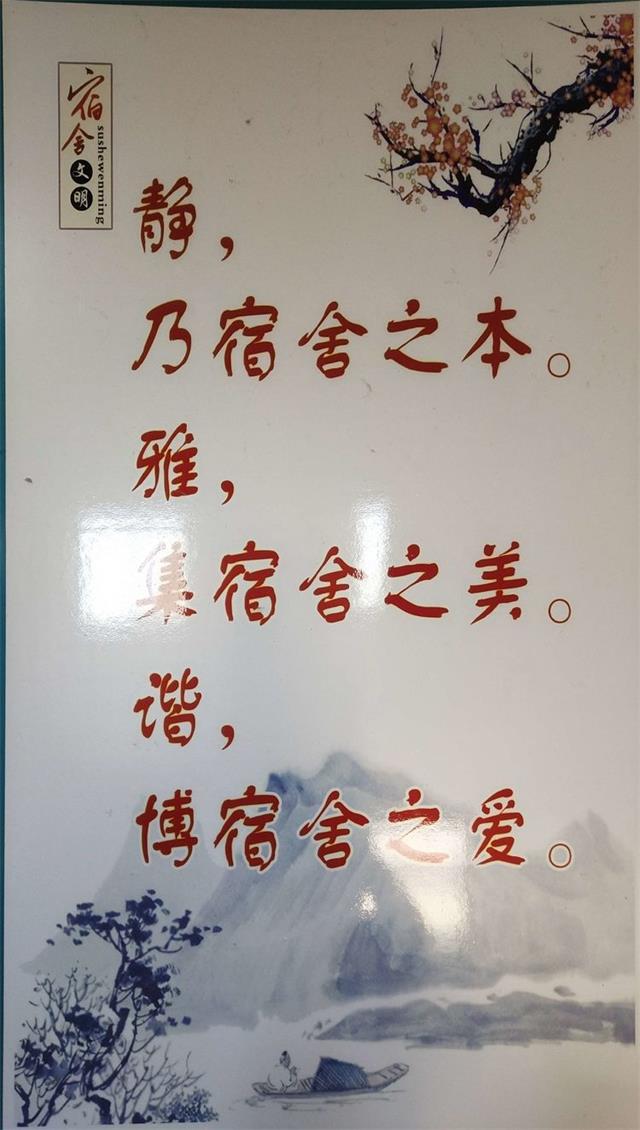 宿舍文明
sushewenming
静，
乃宿舍之本。
雅，
集宿舍之美。
谐，
博宿舍之爱。